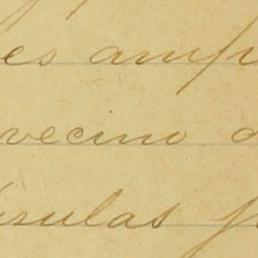 es amp
vecino
rsulas